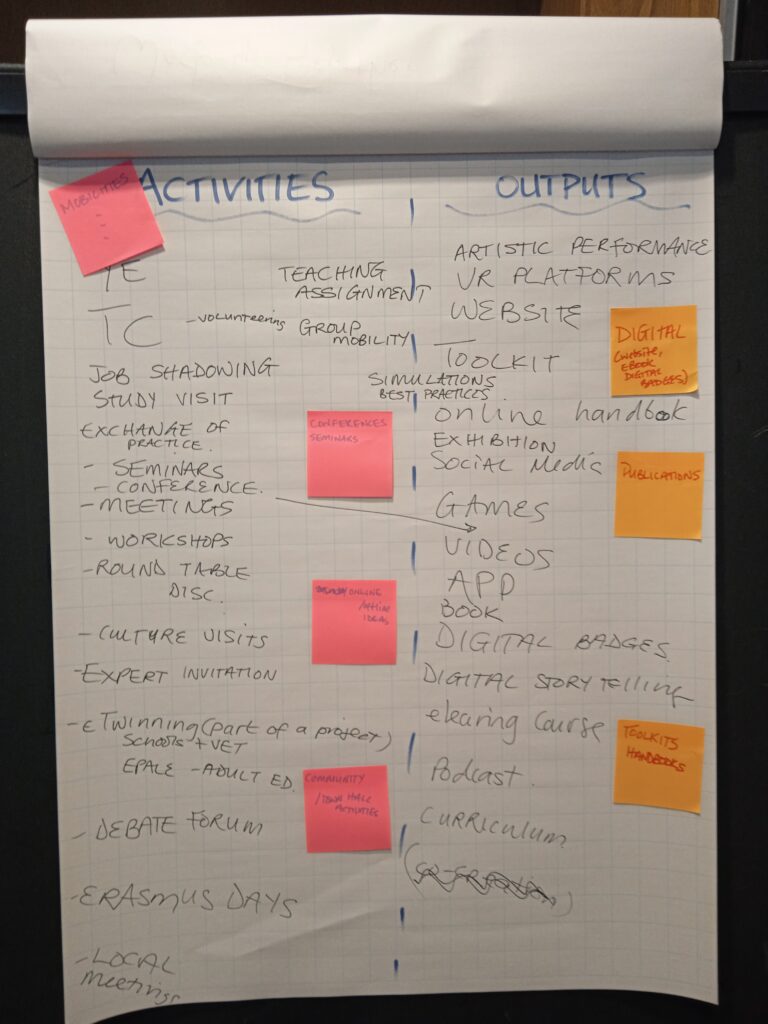 ACTIVITIES
MOBILITIES
YE
TEACHING
ASSIGNMENT
TC
-volunteering
GROUP
MOBILITY
JOB SHADOWING
STUDY VISIT
SIMULATIONS
BEST PRACTICES
EXCHANGE OF
PRACTICE.
- SEMINARS
- CONFERENCE.
- MEETINGS
CONFERENCES
SEMINARS
- WORKSHOPS
- ROUND TABLE
DISC.
ONLINE
/offline
IDEAS
- CULTURE VISITS
- EXPERT INVITATION
- eTwinning (part of a project)
Schools + VET
EPALE - ADULT ED.
COMMUNITY
/TOWN HALL
ACTIVITIES
- DEBATE FORUM
- ERASMUS DAYS
- LOCAL
Meetings
OUTPUTS
ARTISTIC PERFORMANCE
VR PLATFORMS
WEBSITE
TOOLKIT
DIGITAL
(website,
EBOOK
DIGITAL
BADGES)
online handbook
EXHIBITION
SOCIAL MEDIA
PUBLICATIONS
GAMES
VIDEOS
APP
BOOK
DIGITAL BADGES.
DIGITAL STORYTELLING
elearing Course
TOOLKITS
HANDBOOKS
Podcast.
CURRICULUM